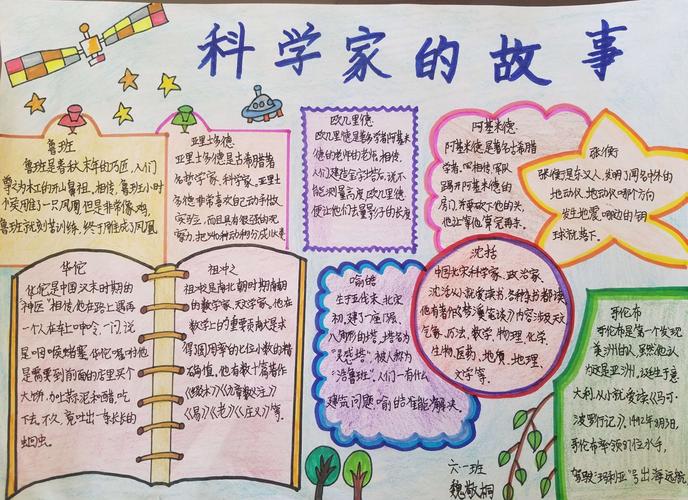 科学家的故事
鲁班
鲁班是春秋末年的巧匠,人们
尊为木工的开山鼻祖,相传,鲁班小时
个英雕了一只凤凰,但是非常像鸡,
鲁班就刻苦训练,终于雕成了凤凰
亚里士多德
亚里士多德是古希腊着
名哲学家、科学家。亚里士
多德非常喜欢自己动手做
实验,而且有很强的观
察力,把540种动物分成
欧几里德
欧几里德是数学者阿基米
德的老师的老师,相传,
人们建造金字塔后,谁不
能测量高度,欧几里德
便让他们去量影子的长度
阿基米德
阿基米德是著名古希腊
学者,四相传,军队
踢开阿基米德的
房门,并要砍下他的头,
他让等他算完再杀。
张衡
张衡是东汉人,发明了闻名中外的
地动仪,地动仪哪个方向
发生地震,哪边的铜
球就落下。
华佗
华佗是中国汉末时期的
"神医"相传,他在路上遇到
一个人在车上呻吟,一问,说
是咽喉堵塞,华佗嘱咐他
是需要到前面的店里买个
大饼,加上蒜泥和醋,吃
下去,不久,竟吐出一条长长的
蛔虫。
祖冲之
祖冲之是南北朝时期南朝
的数学家、天文学家,他在
数学上的重要贡献是求
得圆周率的七位小数的精
确值,他有数十篇著作
《缀术》《九章算术注》
《易》《老》《庄义》等。
喻皓
生于五代末,北宋
初,建了一座8层、
八角形的塔,塔名为
"灵感塔",被人敬为
"活鲁班"。人们一有什么
建筑问题,喻皓准能解决。
沈括
中国北宋科学家、政治家、
沈括从小就爱读书,各种杂书都读,
他有著作《梦溪笔谈》,内容涉及天文
气象、历法、数学、物理、化学
生物、医药、地质、地理、
文学等。
哥伦布
哥伦布是第一个发现
美洲的人,虽然他认
为这是亚洲,该生于意
大利,从小就爱读《马可·
波罗行记》。1492年8月3日,
哥伦布率领87位水手,
驾驶"玛利亚"号出海远航
六一班
魏敬桐